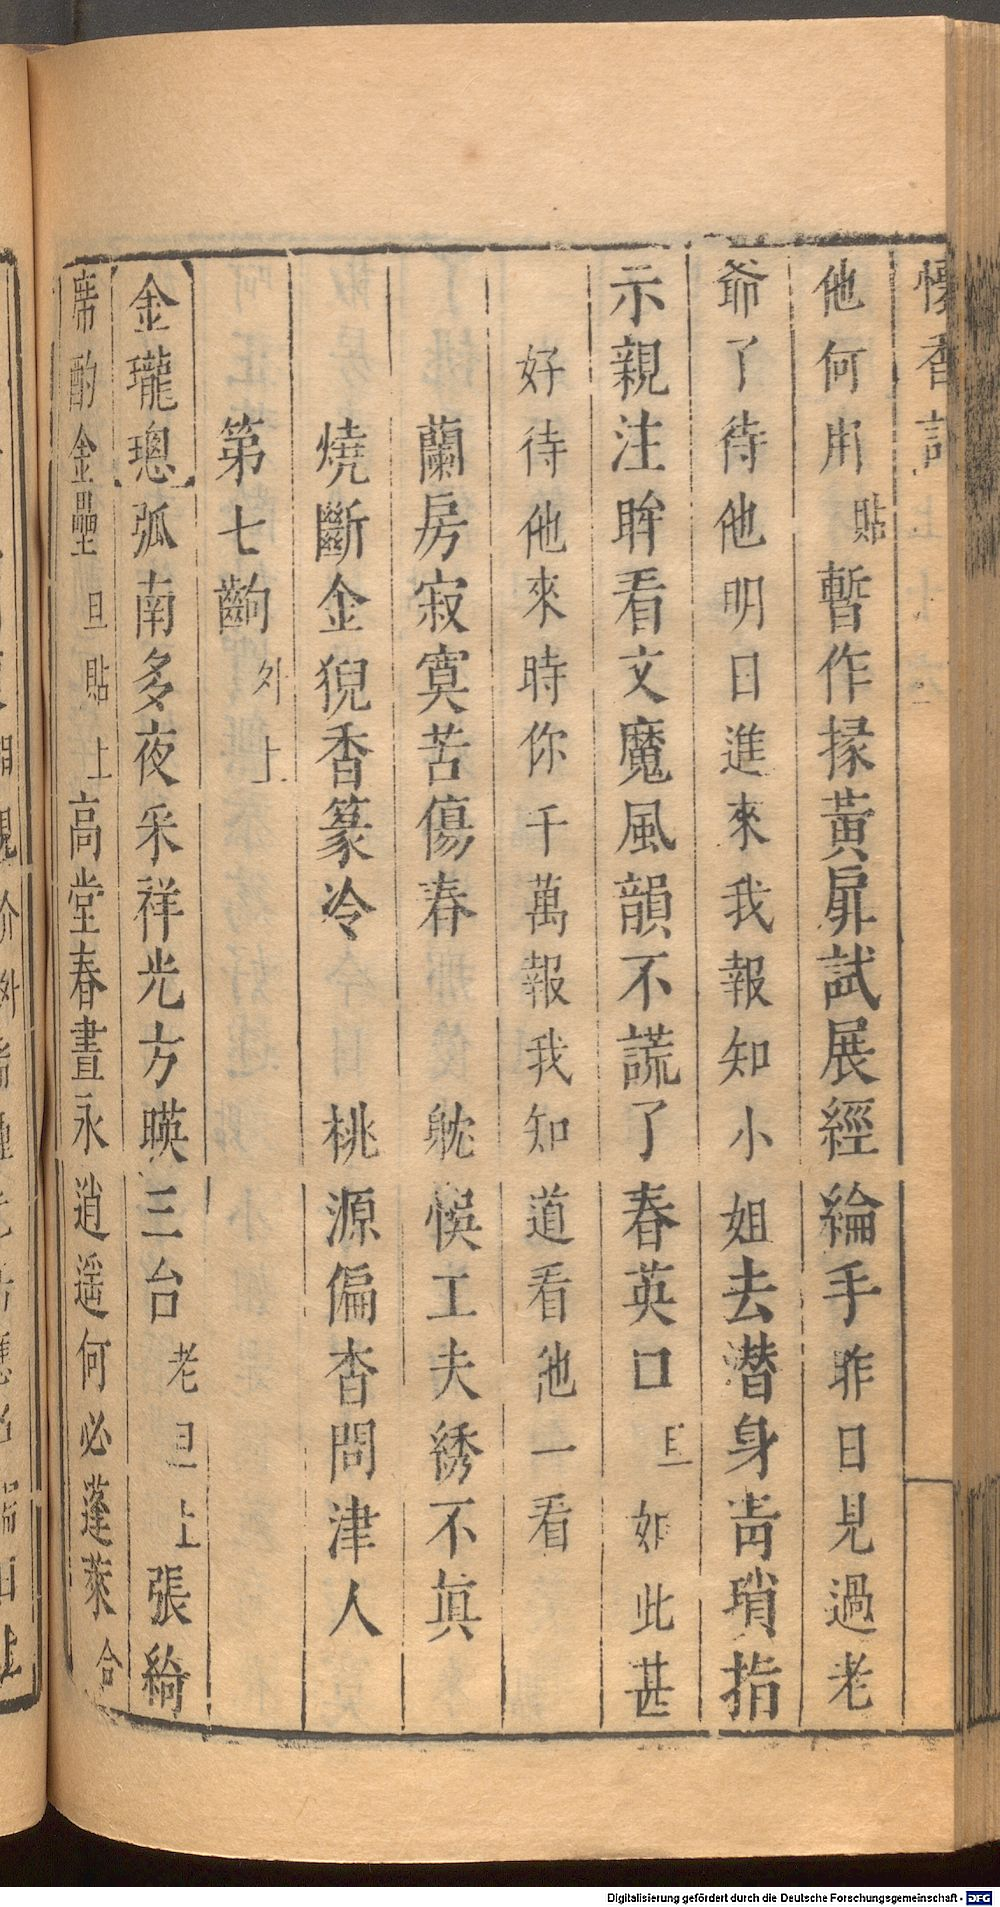 懷香記
他何用貼暫作掾黃扉試展經綸手昨日見過老
爺了待他明日進來我報知小姐去潛身靑瑣指
示親注眸看文魔風韻不謊了春英口旦如此甚
好待他來時你千萬報我知道看他一看
蘭房寂寞苦傷春 躭悞工夫綉不眞
燒斷金猊香篆冷 桃源偏杳問津人
第七齣外上
金瓏璁弧南多夜釆祥光方暎三台老旦上張綺
席酌金罍旦貼上高堂春晝永逍遥何必蓬萊合
Digitalisierung gefördert durch die Deutsche Forschungsgemeinschaft - DFG